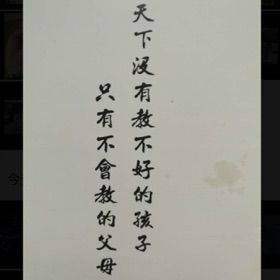 天下没有教不好的孩子
只有不會教的父母